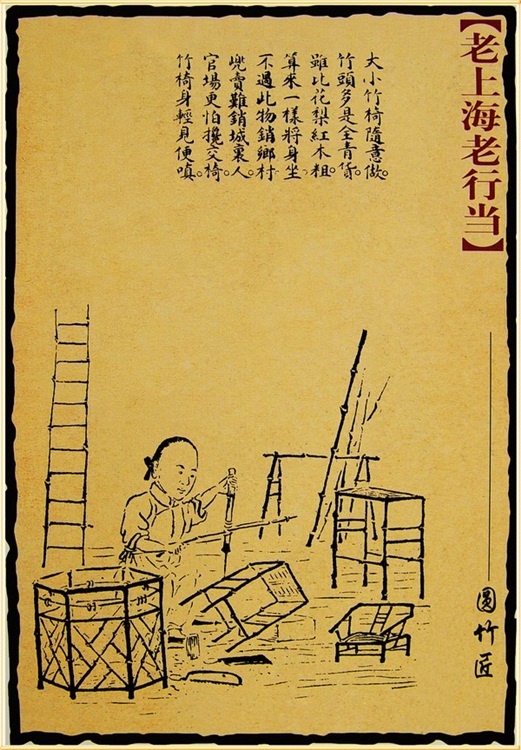 【老上海老行当】
大小竹椅隨意做。
竹頭多是全青货。
雖比花梨紅木粗。
算來一樣將身坐
不過此物銷鄉村
兜賣難銷城裏人。
官場更怕攙交椅。
竹椅身輕見便嗔。
圓竹匠